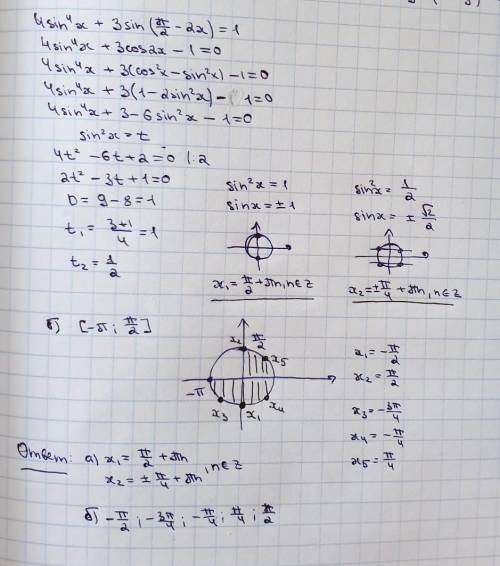 4sin⁴x + 3sin(π/2 - 2x) = 1
4sin⁴x + 3cos2x - 1 = 0
4sin⁴x + 3(cos²x - sin²x) - 1 = 0
4sin⁴x + 3(1 - 2sin²x) - 1 = 0
4sin⁴x + 3 - 6sin²x - 1 = 0
sin²x = t
4t² - 6t + 2 = 0 |:2
2t² - 3t + 1 = 0
D = 9 - 8 = 1
t₁ = (3+1)/4 = 1
t₂ = 1/2
sin²x = 1
sinx = ±1
x₁ = π/2 + πn, n∈Z
sin²x = 1/2
sinx = ± √2/2
x₂ = ±π/4 + πn, n∈Z
б) [-π; π/2]
x₂ π/2
x₅
-π
x₃ x₁ x₄
x₁ = -π/2
x₂ = π/2
x₃ = -3π/4
x₄ = -π/4
x₅ = π/4
Ответ: а) x₁ = π/2 + πn
x₂ = ± π/4 + πn, n∈Z
б) -π/2; -3π/4; -π/4; π/4; π/2